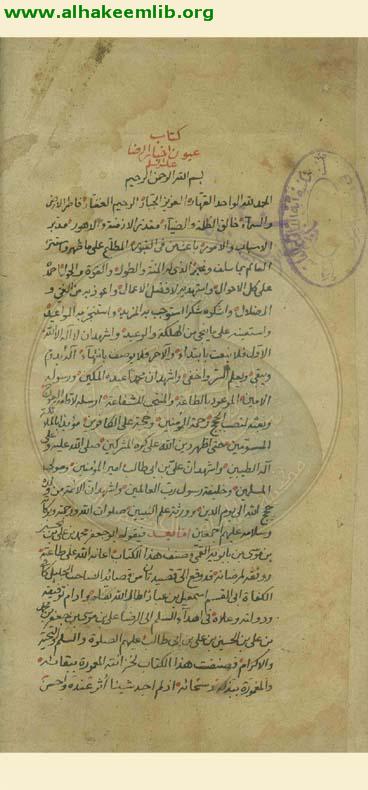 www.alhakeemlib.org
كتاب
عيون اخبار الرضا
عليه السلام
بسم الله الرحمن الرحيم
الحمد لله الواحد القهار العزيز الجبار الرحيم الغفار فاطر الارض
والسماء خالق الظلمة والضياء مقدر الازمنة والدهور مدبر
الاسباب والامور باعث من في القبور المطلع على ما ظهر واستتر
العالم بما سلف وغبر الذي له المنة والطول والقوة والحول احمده
على كل الاحوال واستهديه لافضل الاعمال واعوذ به من الغي و
الضلال واشكره شكرا استوجب به المزيد واستنجز به المواعيد
واستعينه على ما ينجي من الهلكة والوعيد واشهد ان لا اله الا الله
الاول فلا ينعت بابتداء والآخر فلا يوصف بانتهاء
ويبقى ويعلم السر واخفى واشهد ان محمدا عبده المكين ورسوله
الامين المعروف بالطاعة والمنتجب للشفاعة ارسله لاقامة
وبعثه لنصب الحجج رحمة للمؤمنين وحجة على الكافرين مؤيدا بالملائكة
المسومين حتى اظهر دين الله على كره المشركين صلى الله عليه و
آله الطيبين واشهد ان علي بن ابي طالب امير المؤمنين ومولى
المسلمين وخليفة رسول رب العالمين واشهد ان الائمة من ولده
حجج الله الى يوم الدين وورثة علم النبيين صلوات الله ورحمته وبركاته
وسلامه عليهم اجمعين اما بعد فيقول ابو جعفر محمد بن علي بن الحسين
بن موسى بن بابويه القمي مصنف هذا الكتاب اعانه الله على طاعته
ووفقه لمرضاته قد وقع الي قصيدتان من قصائد الصاحب الجليل كافي
الكفاة ابي القسم اسمعيل بن عباد اطال الله بقاءه وادام توفيقه
ودولته وعلاه في اهداء السلم الى الرضا علي بن موسى بن جعفر بن محمد
بن علي بن الحسين بن علي بن ابي طالب عليهم الصلوة والسلم والتحية
والاكرام وصنفت هذا الكتاب لخزانته المعمورة ببقائه
اذ لم اجد شيئا آثر عنده واحسن